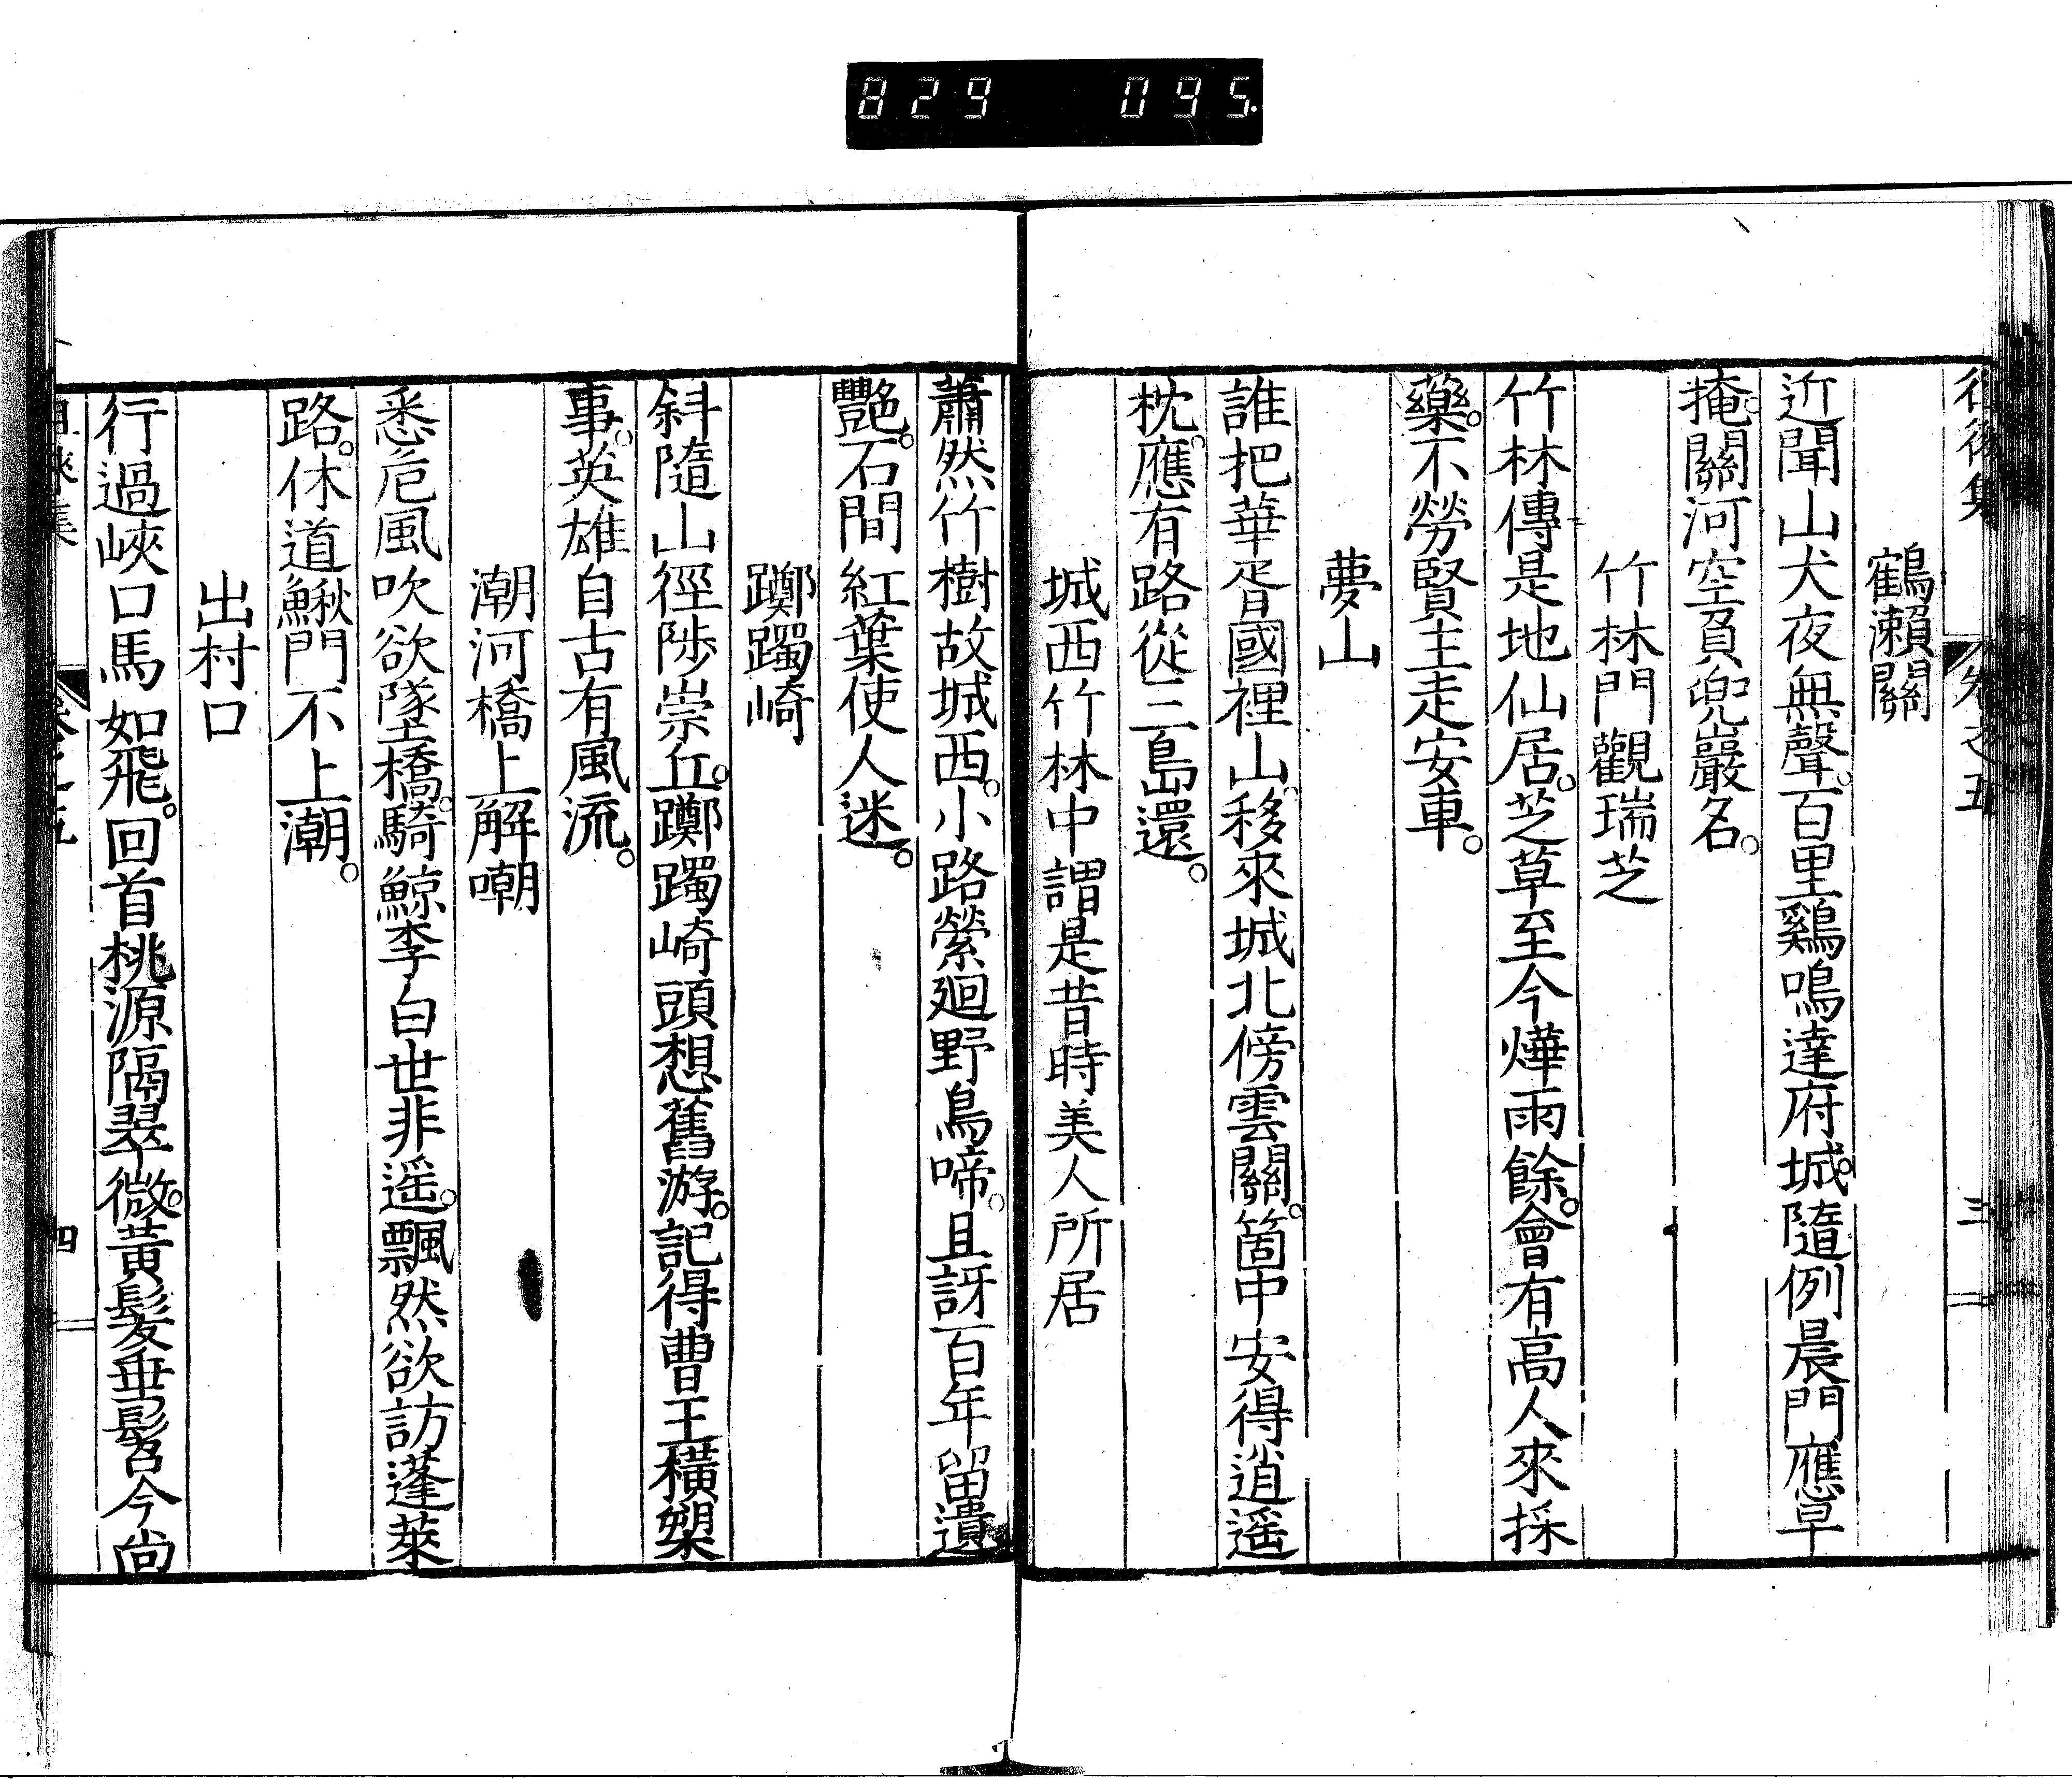 829 095.
鶴瀨關
近聞山犬夜無聲。百里鷄鳴達府城。隨例晨門應早
掩。關河空負兜巖名。
竹林門觀瑞芝
竹林傳是地仙居。芝草至今燁雨餘。會有高人來採
藥。不勞賢主走安車。
夢山
誰把華胥國裡山。移來城北傍雲關。箇中安得逍遥
枕。應有路從三島還。
城西竹林中謂是昔時美人所居
蕭然竹樹故城西。小路縈廻野鳥啼。且訝百年留遺
艷。石間紅葉使人迷。
躑躅崎
斜隨山徑陟崇丘。躑躅崎頭想舊游。記得曹王橫槊
事。英雄自古有風流。
潮河橋上解嘲
悉危風吹欲墜橋。騎鯨李白世非遥。飄然欲訪蓬萊
路。休道鰍門不上潮。
出村口
行過峽口馬如飛。回首桃源隔翠微。黃髮垂髫今尚
卷之五
四